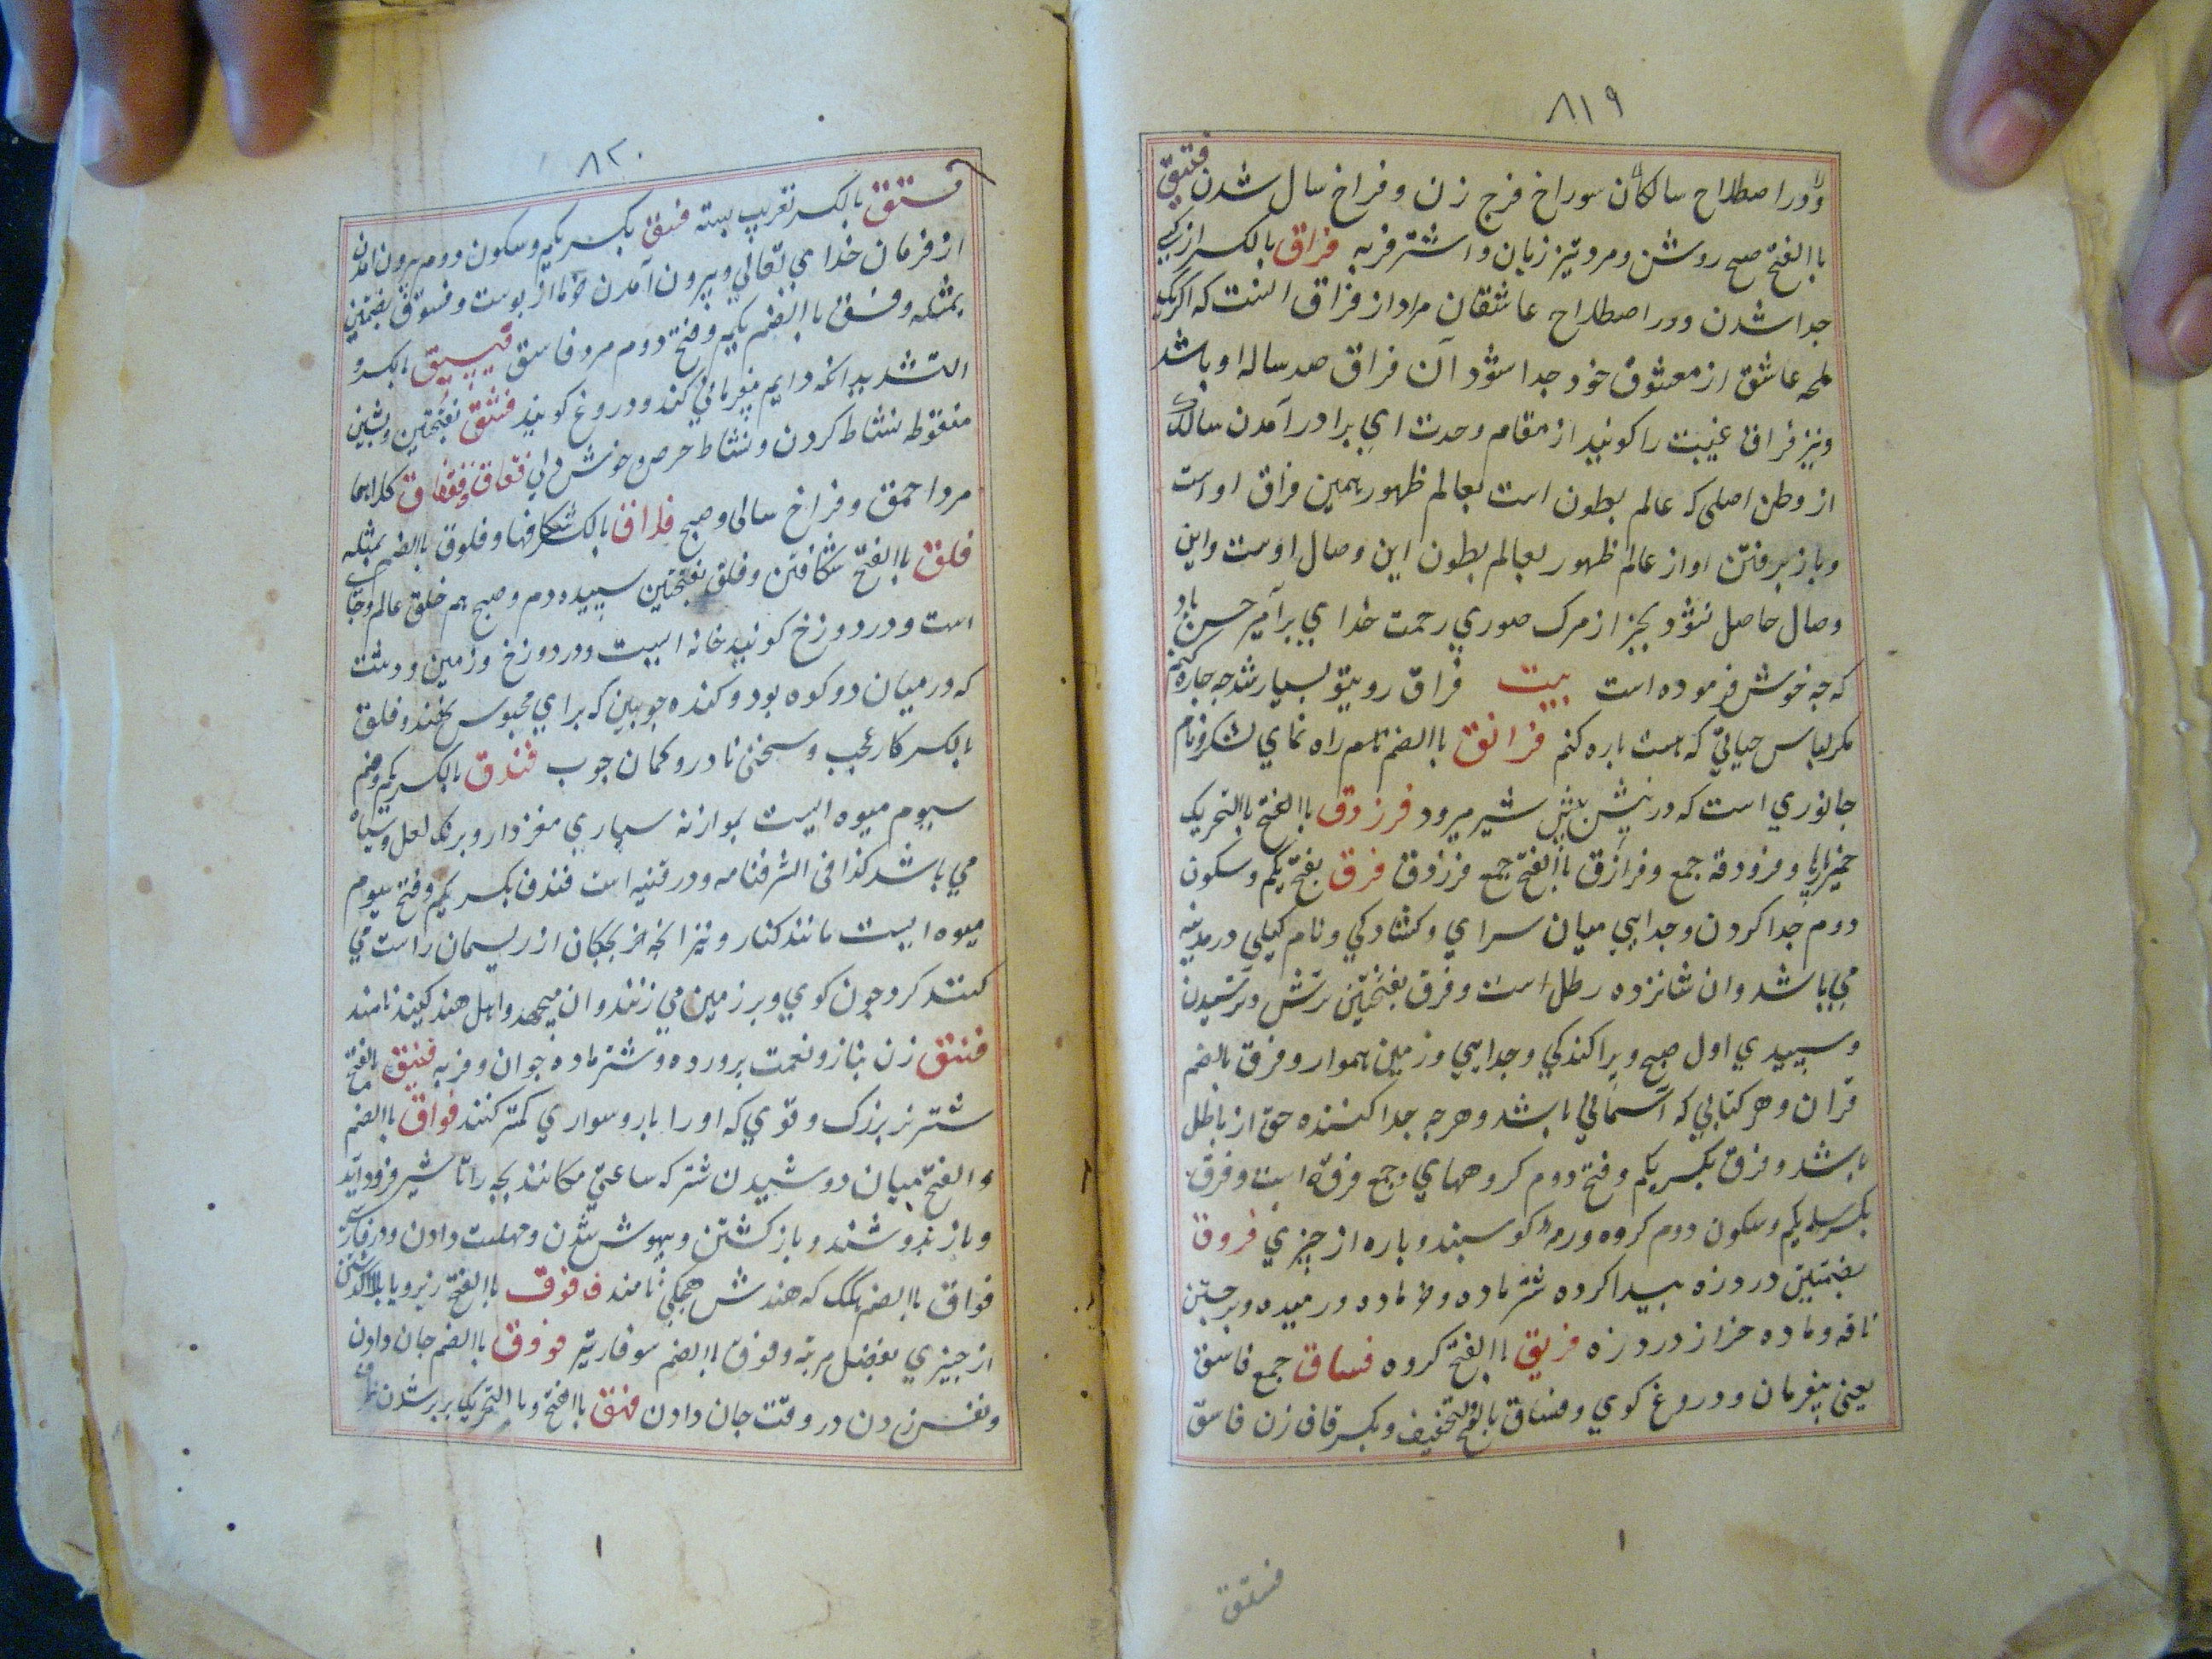 ۸۱۹
ودر اصطلاح سالکان سوراخ فرج زن و فراخ سال شدن فتیق
باالفتح صبح روشن ومرد تیز زبان واشتر فربه فراق بالکسر از یکی
جدا شدن ودر اصطلاح عاشقان مراد از فراق انست که اگر یک
لمحه عاشق از معشوق خود جدا شود آن فراق صد ساله او باشد
ونیز فراق غیبت را کویند از مقام وحدت ای برادر آمدن سالک
از وطن اصلی که عالم بطون است بعالم ظهور همین فراق او است
وباز برفتن او از عالم ظهور بعالم بطون این وصال اوست واین
وصال حاصل نشود بجز از مرک صوری رحمت خدای بر آمیر حسن باد
که چه خوش فرموده است بیت فراق رویتو بسیار شد چه چاره کنم
مکر لباس حیاتی که هست پاره کنم فرانق باالضم تمام راه نمای لشکر ونام
جانوری است که در پیش پیش شیر میرود فرزدق باالفتح باالتحریک
خمیرها وفرزدقه جمع وفرازق باالفتح جمع فرزدق فرق بفتح یکم وسکون
دوم جدا کردن وجدایی میان سرای وکشادکی ونام کیلی در مدینه
می باشد وان شانزده رطل است وفرق بفتحتین ترش وترسیدن
وسپیدی اول صبح وپراکندکی وجدایی وزمین هموار وفرق بالضم
قران وهر کتابی که آسمانی باشد وهر چه جدا کننده حق از باطل
باشد وفرق بکسر یکم وفتح دوم کروههای وجمع فرقه است وفرق
بکسر یکم وسکون دوم کروه ورمه کوسپند وپاره از چیزی فروق
بضمتین دروزه پیدا کرده شتر ماده وخر ماده ورمیده وبر جستن
ناقه وماده خر از دردزه فریق باالفتح کروه فساق جمع فاسق
یعنی بیفرمان ودروغ کوی وفساق بالفتح والتخفیف وبکسر قاف زن فاسق
فستق
۸۲۰
فستق بالکسر تعریب پسته فسق بکسر یکم وسکون دوم بیرون امدن
از فرمان خدای تعالی وبیرون آمدن خرما از پوست وفسوق بضمتین
بمثله وفسق باالضم یکم وفتح دوم مرد فاسق فسیق بالکسر و
التشدید انکه دایم بیفرمانی کند ودروغ کویند فشق بفتحتین وبشین
منقوطه نشاط کردن ونشاط حرص وخوش دلی فقاق وفقفاق کلاهما
مرد احمق وفراخ سالی وصبح فلاق بالکسر شکافها وفلوق باالضم بمثله
فلق باالفتح شکافتن وفلق بفتحتین سپیده دم وصبح هم خلق عالم
است ودر دوزخ کویند خانه ایست ودر دوزخ وزمین ودشت
که در میان دو کوه بود وکنده چوبین که برای محبوس نهند وفلق
بالکسر کار عجب وسخنی نادر وکمان چوب فندق بالکسر یکم وضم
سیوم میوه ایست بموازنه سپاری مغز دار وبرنک لعل وسیاه
می باشد کذا فی الشرفنامه ودر قنیه است فندق بکسر یکم وفتح سیوم
میوه ایست مانند کنار ونیز انچه از بچکان از ریسمان راست می
کنند کرد چون کوی وبر زمین می زنند وان میجهد واهل هند کیند نامند
فنق زن بناز ونعمت پرورده وشتر ماده جوان وفربه فنیق بالفتح
شتر نر بزرک وقوی که اورا بار وسواری کمتر کنند فواق باالضم
والفتح میان دوشیدن شتر که ساعتی مکانند بچه را تا شیر فرود آید
وباز بدوشند وباز کشتن وبیهوش شدن ومهلت دادن ودر فارسی
فواق باالضم هکک که هندش هچکی نامند فوق باالفتح زبر وبالا
از چیزی بفضل مرتبه وفوق باالضم سوفار تیر فووق باالضم جان دادن
ونفس زدن در وقت جان دادن فهق باالفتح وباالتحریک پر بر شدن